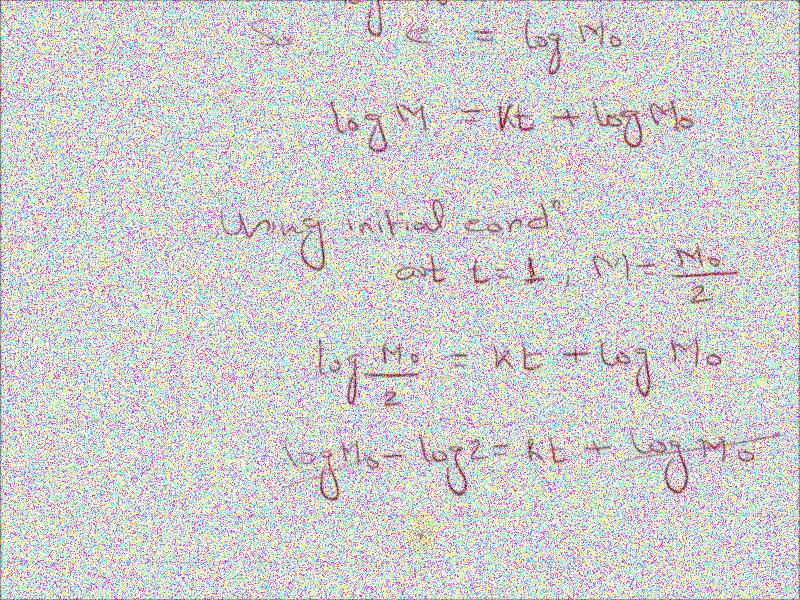 So, c = log M₀
log M = kt + log M₀
Using initial condⁿ
at t = 1, M = M₀/2
log M₀/2 = kt + log M₀
log M₀ - log 2 = kt + log M₀